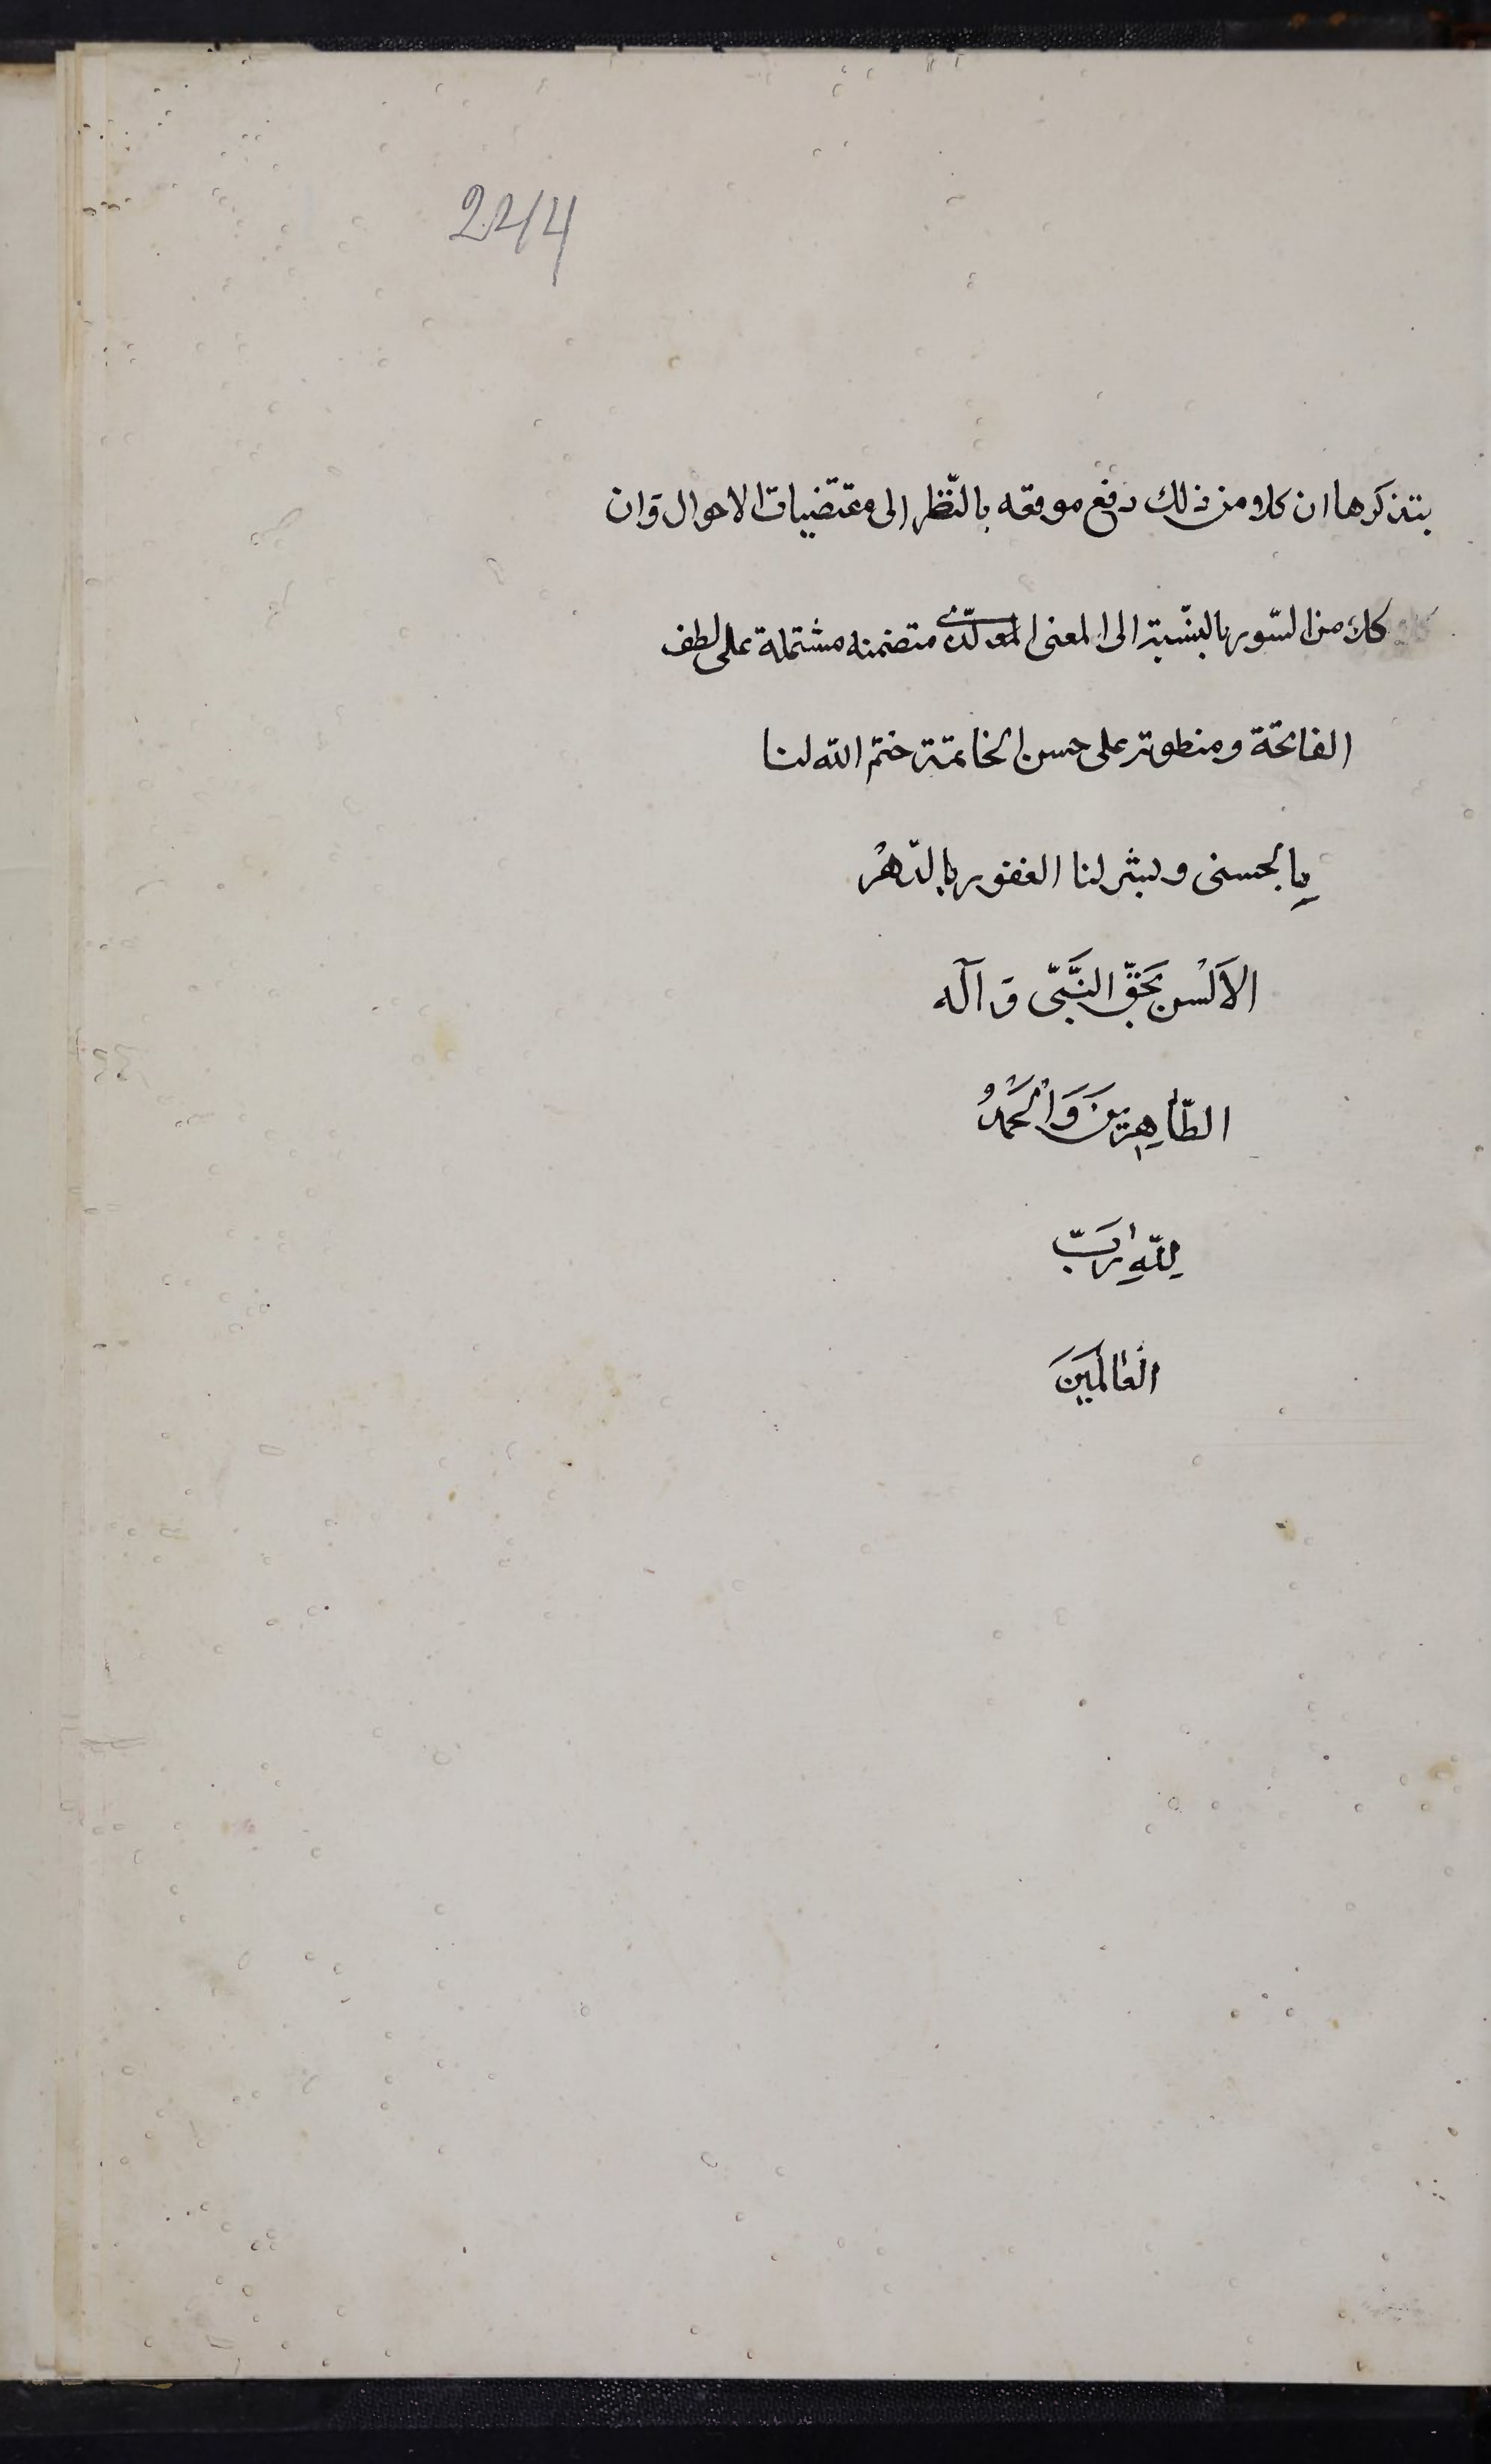 2244
بتذكرها ان كلا من ذلك دفع موقعه بالنّظر الى مقتضيات الاحوال وَان
كلا من السّور بالنّسبة الى المعنى الّذى متضمنه مشتملة على لطف
الفاتحة ومنطوية على حسن الخاتمة ختم الله لنا
بالحسنى وبشر لنا الغفور بالذهر
الاَلْسن بحَقّ النَّبّى وَ آله
الطّاهِرِينَ وَالْحَمْدُ
لِلّهِ رَبّ
الْعالَمِينَ